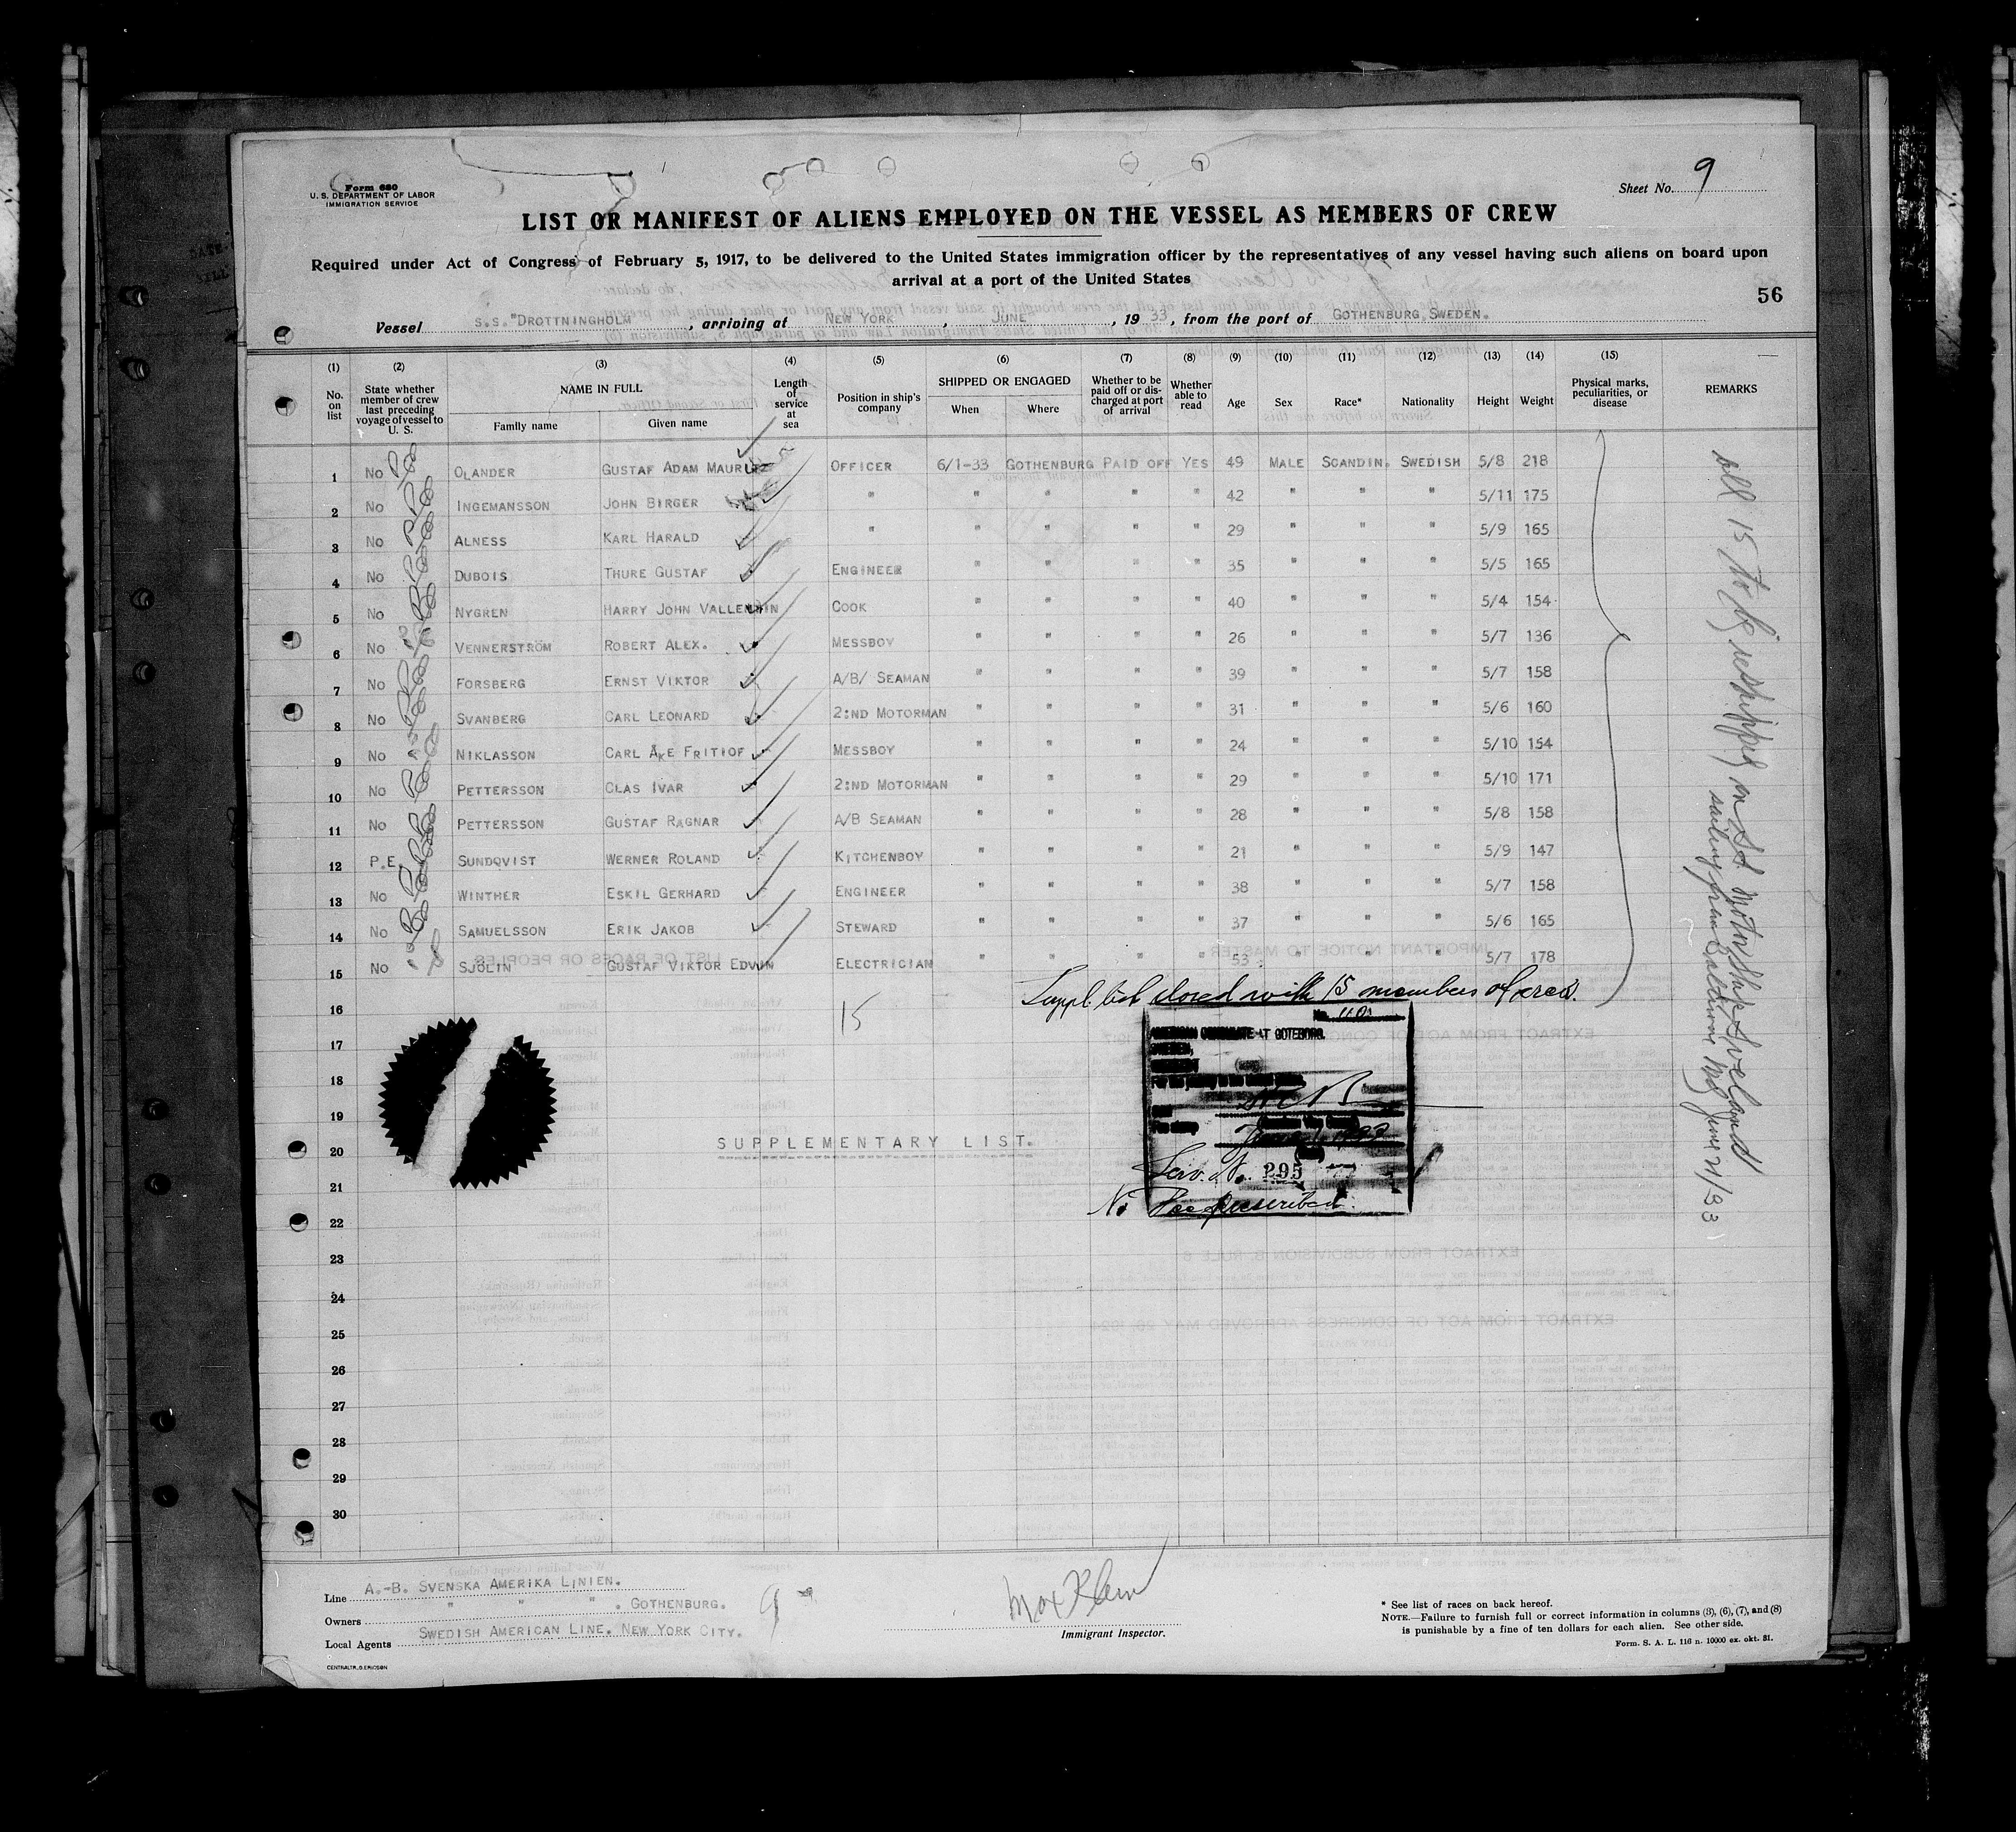 Form 680
U. S. DEPARTMENT OF LABOR
IMMIGRATION SERVICE
Sheet No. 9
LIST OR MANIFEST OF ALIENS EMPLOYED ON THE VESSEL AS MEMBERS OF CREW
Required under Act of Congress of February 5, 1917, to be delivered to the United States immigration officer by the representatives of any vessel having such aliens on board upon
arrival at a port of the United States
56
Vessel S.S. "DROTTNINGHOLM", arriving at NEW YORK, JUNE, 1933, from the port of GOTHENBURG, SWEDEN.
(1) (2) (3) (4) (5) (6) (7) (8) (9) (10) (11) (12) (13) (14) (15)
No. on list | State whether member of crew last preceding voyage of vessel to U. S. | NAME IN FULL | Family name | Given name | Length of service at sea | Position in ship's company | SHIPPED OR ENGAGED | When | Where | Whether to be paid off or discharged at port of arrival | Whether able to read | Age | Sex | Race* | Nationality | Height | Weight | Physical marks, peculiarities, or disease | REMARKS
1 No OLANDER GUSTAF ADAM MAURITZ OFFICER 6/1-33 GOTHENBURG PAID OFF YES 49 MALE SCANDIN. SWEDISH 5/8 218
2 No INGEMANSSON JOHN BIRGER " " " " " 42 " " " 5/11 175
3 No ALNESS KARL HARALD " " " " " 29 " " " 5/9 165
4 No DUBOIS THURE GUSTAF ENGINEER " " " " 35 " " " 5/5 165
5 No NYGREN HARRY JOHN VALLENTIN COOK " " " " 40 " " " 5/4 154
6 No VENNERSTRÖM ROBERT ALEX. MESSBOY " " " " 26 " " " 5/7 136
7 No FORSBERG ERNST VIKTOR A/B/ SEAMAN " " " " 39 " " " 5/7 158
8 No SVANBERG CARL LEONARD 2:ND MOTORMAN " " " " 31 " " " 5/6 160
9 No NIKLASSON CARL ÅKE FRITIOF MESSBOY " " " " 24 " " " 5/10 154
10 No PETTERSSON CLAS IVAR 2:ND MOTORMAN " " " " 29 " " " 5/10 171
11 No PETTERSSON GUSTAF RAGNAR A/B SEAMAN " " " " 28 " " " 5/8 158
12 P.E. SUNDQVIST WERNER ROLAND KITCHENBOY " " " " 21 " " " 5/9 147
13 No WINTHER ESKIL GERHARD ENGINEER " " " " 38 " " " 5/7 158
14 No SAMUELSSON ERIK JAKOB STEWARD " " " " 37 " " " 5/6 165
15 No SJÖLIN GUSTAF VIKTOR EDVIN ELECTRICIAN " " " " 53 " " " 5/7 178
All 15 to be reshipped on S.S. Motorship Svealand
sailing from Baltimore Md June 21/33
Suppl list closed with 15 members of crew.
16
15
17
18
19
20
21
22
23
24
25
26
27
28
29
30
No.
AMERICAN CONSULATE AT GOTEBORG,
SWEDEN,
For the journey to the United States
Fee stamp
Serv. No. 295
No Fee prescribed.
SUPPLEMENTARY LIST.
Line A.-B. SVENSKA AMERIKA LINIEN.
Owners " " " . GOTHENBURG.
Local Agents SWEDISH AMERICAN LINE. NEW YORK CITY.
9
Max Klein
Immigrant Inspector.
* See list of races on back hereof.
NOTE.—Failure to furnish full or correct information in columns (3), (6), (7), and (8)
is punishable by a fine of ten dollars for each alien. See other side.
Form. S. A. L. 116 n. 10000 ex. okt. 31.
CENTRALTR., G. ERICSON